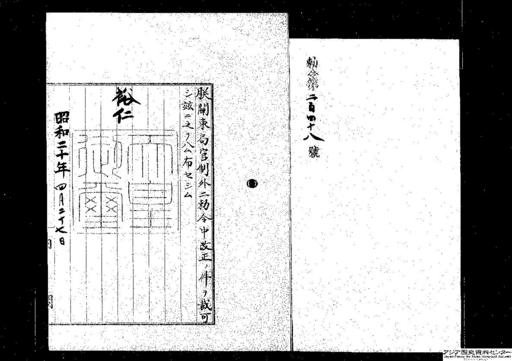 勅令第二百四十八號
朕關東局官制外二勅令中改正ノ件ヲ裁可
シ玆ニ之ヲ公布セシム
裕仁
天皇御璽
昭和二十年四月二十七日
アジア歴史資料センター